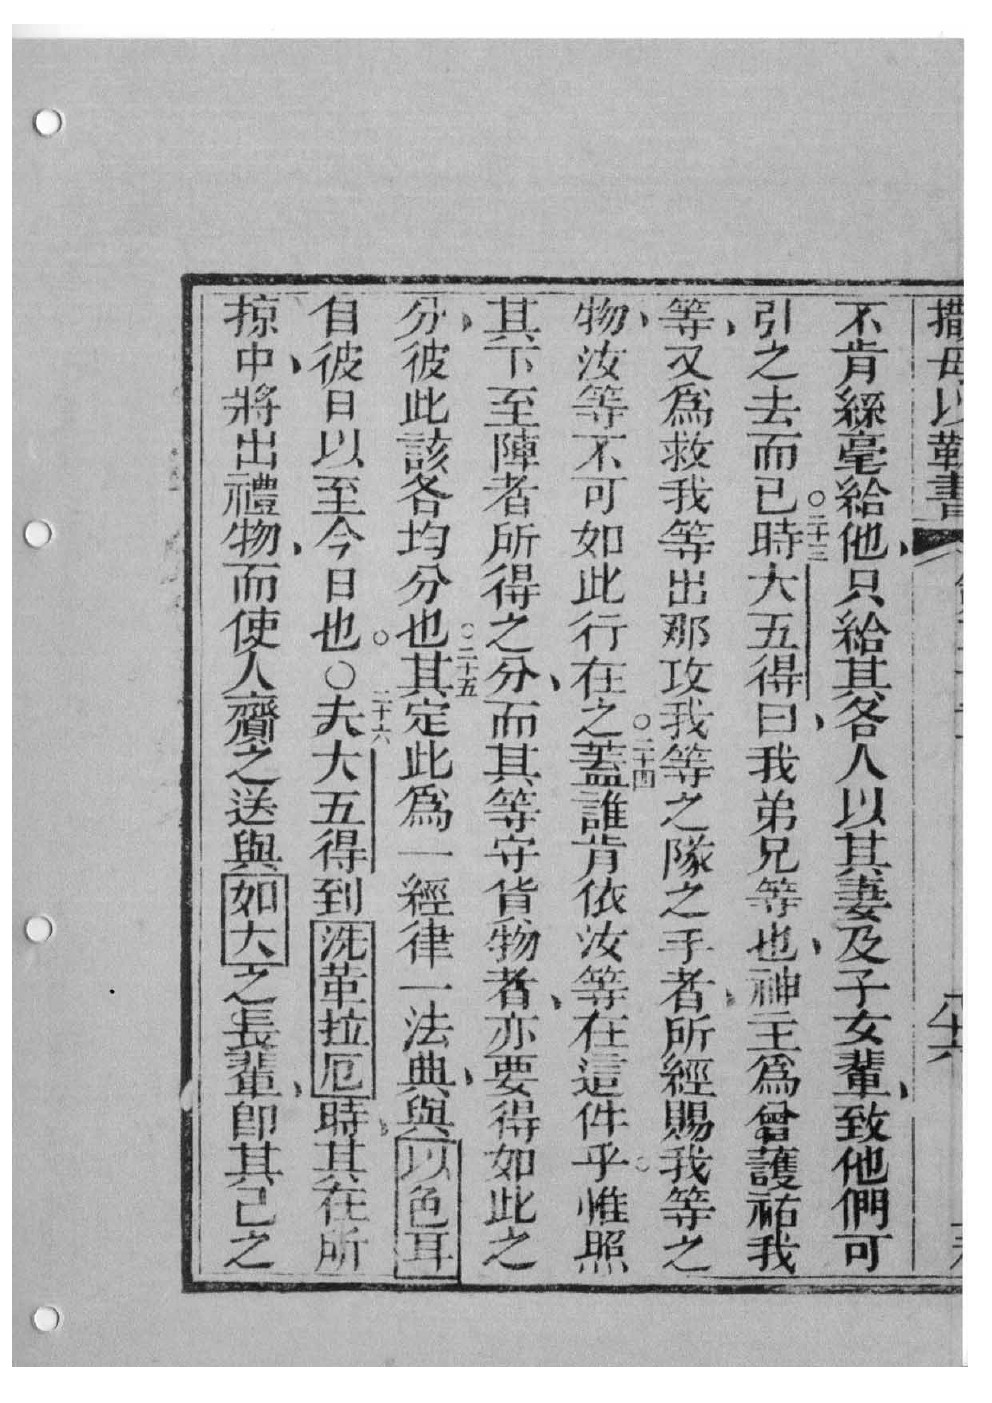 撒母以勒書
八十六
不肯絲毫給他只給其各人以其妻及子女輩致他們可
引之去而已○二十三時大五得曰我弟兄等也神主為曾護祐我
等又為救我等出那攻我等之隊之手者所經賜我等之
物汝等不可如此行在之○二十四蓋誰肯依汝等在這件乎惟照
其下至陣者所得之分而其等守貨物者亦要得如此之
分彼此該各均分也○二十五其定此為一經律一法典與以色耳
自彼日以至今日也○二十六夫大五得到洗革拉厄時其在所
掠中將出禮物而使人齎之送與如大之長輩即其己之